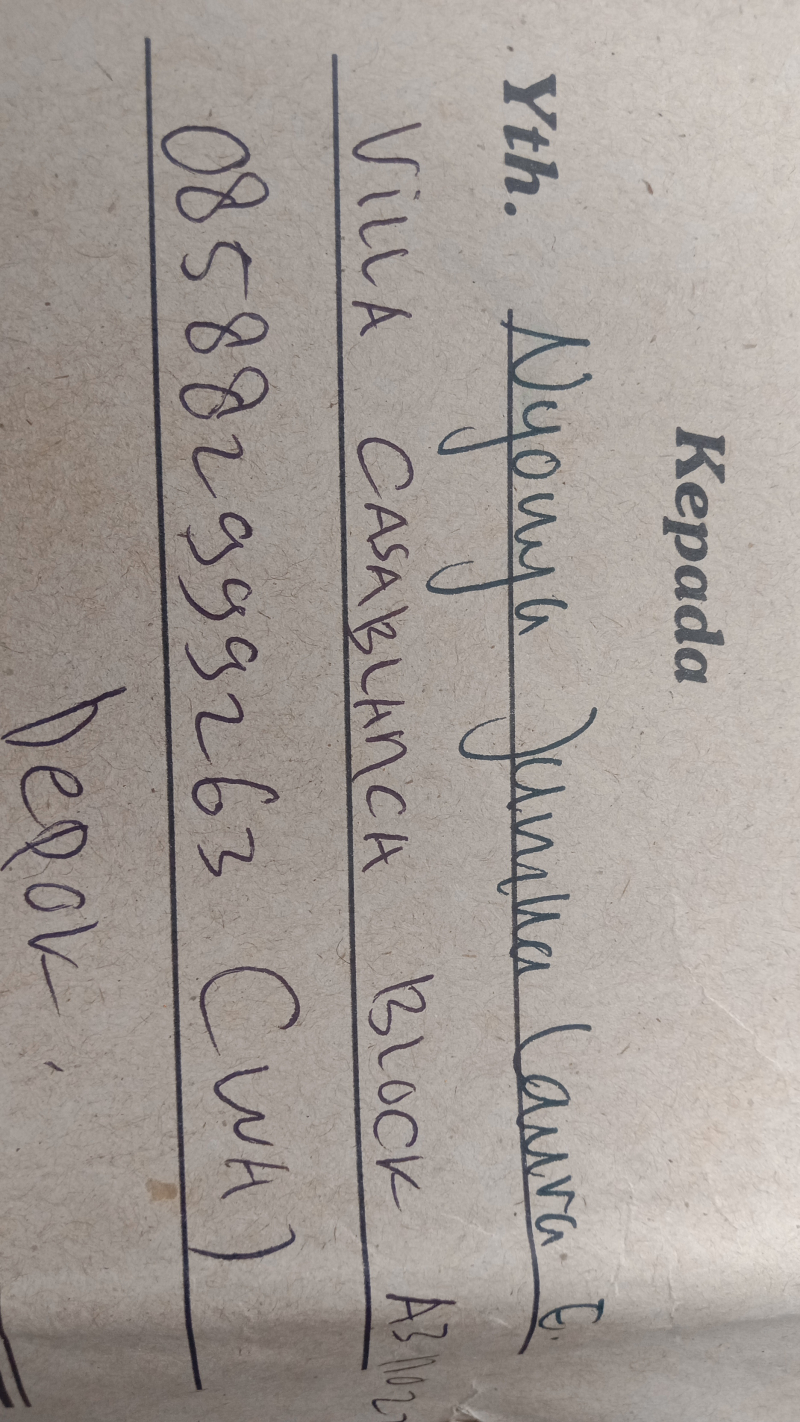 Kepada
Yth. Nyonya Laura E.
VILLA CASABLANCA BLOCK
085882999263 (WA)
Depok.